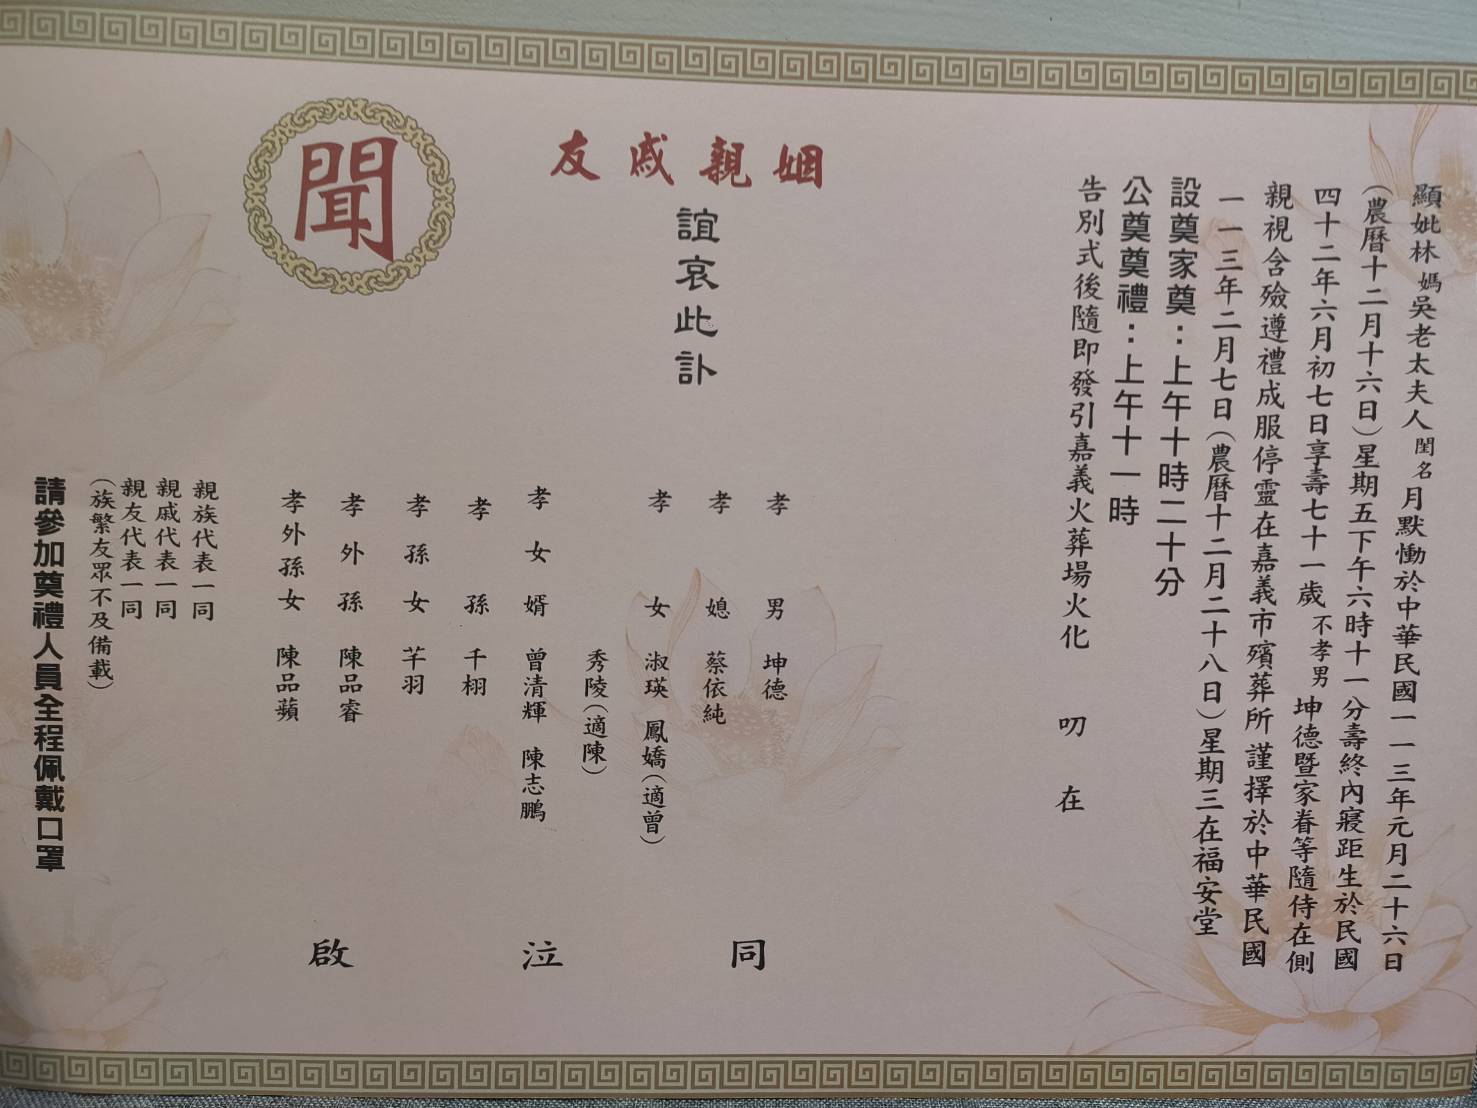 顯妣林媽吳老太夫人閨名月默慟於中華民國一一三年元月二十六日
(農曆十二月十六日)星期五下午六時十一分壽終內寢距生於民國
四十二年六月初七日享壽七十一歲不孝男坤德暨家眷等隨侍在側
親視含殮遵禮成服停靈在嘉義市殯葬所謹擇於中華民國
一一三年二月七日(農曆十二月二十八日)星期三在福安堂
設奠家奠：上午十時二十分
公奠奠禮：上午十一時
告別式後隨即發引嘉義火葬場火化 叨在
姻親戚友
誼哀此訃
聞
孝男 坤德
孝媳 蔡依純
孝女 淑瑛 鳳嬌(適曾)
秀陵(適陳)
孝女婿 曾清輝 陳志鵬
孝孫 千栩
孝孫女 芊羽
孝外孫 陳品睿
孝外孫女 陳品蘋
同泣啟
親族代表一同
親戚代表一同
親友代表一同
(族繁友眾不及備載)
請參加奠禮人員全程佩戴口罩